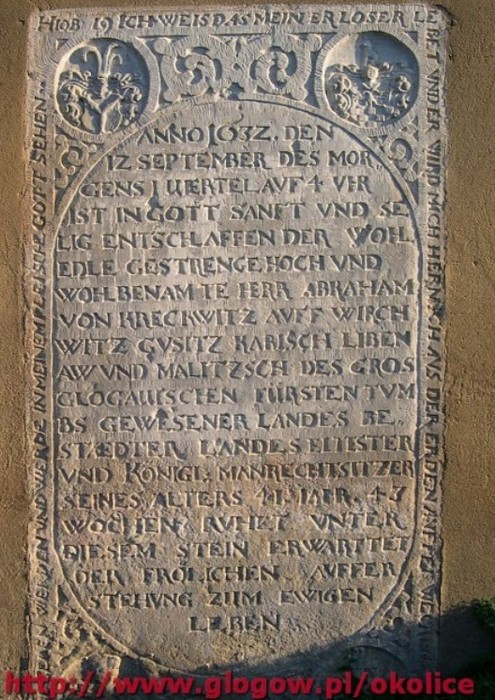 HIOB 19 ICH WEIS DAS MEIN ERLOSER LE
BET UND ER WIRD MICH HERNACH AUS DER ERDEN AUF
WERDEN UND WERDE IN MEINEM FLEISCHE GOTT SEHEN
ANNO 1632. DEN
12 SEPTEMBER DES MOR
GENS 1 UIERTEL AUF 4 VHR
IST IN GOTT SANFT VND SE
LIG ENTSCHLAFFEN DER WOHL
EDLE GESTRENGE HOCH UND
WOHLBENAMTE HERR ABRAHAM
VON KRECKWITZ AUFF WIRCH
WITZ GUSITZ KARISCH LIBEN
AW UND MALITZSCH DES GROS
GLOGAUISCHEN FÜRSTENTUM
BS GEWESENER LANDES BE
STÆDTER LANDES ELLISTER
VND KÖNIGL: MANRECHTSITZER
SEINES ALTERS 41 IAHR. 47
WOCHEN RUHET UNTER
DIESEM STEIN ERWARTTET
DER FRÖLICHEN AUFFER
STEHUNG ZUM EWIGEN
LEBEN
http://www.glogow.pl/okolice